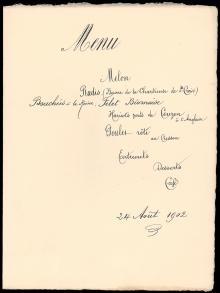 Menu
Melon
Radis (Beurre de la Chartreuse de
Bouchées à la Reine, Filet
Haricots verts de Couzon à l'Anglaise
Poulet rôti au Cresson
Entremets
Desserts
Café
24 Août 1902